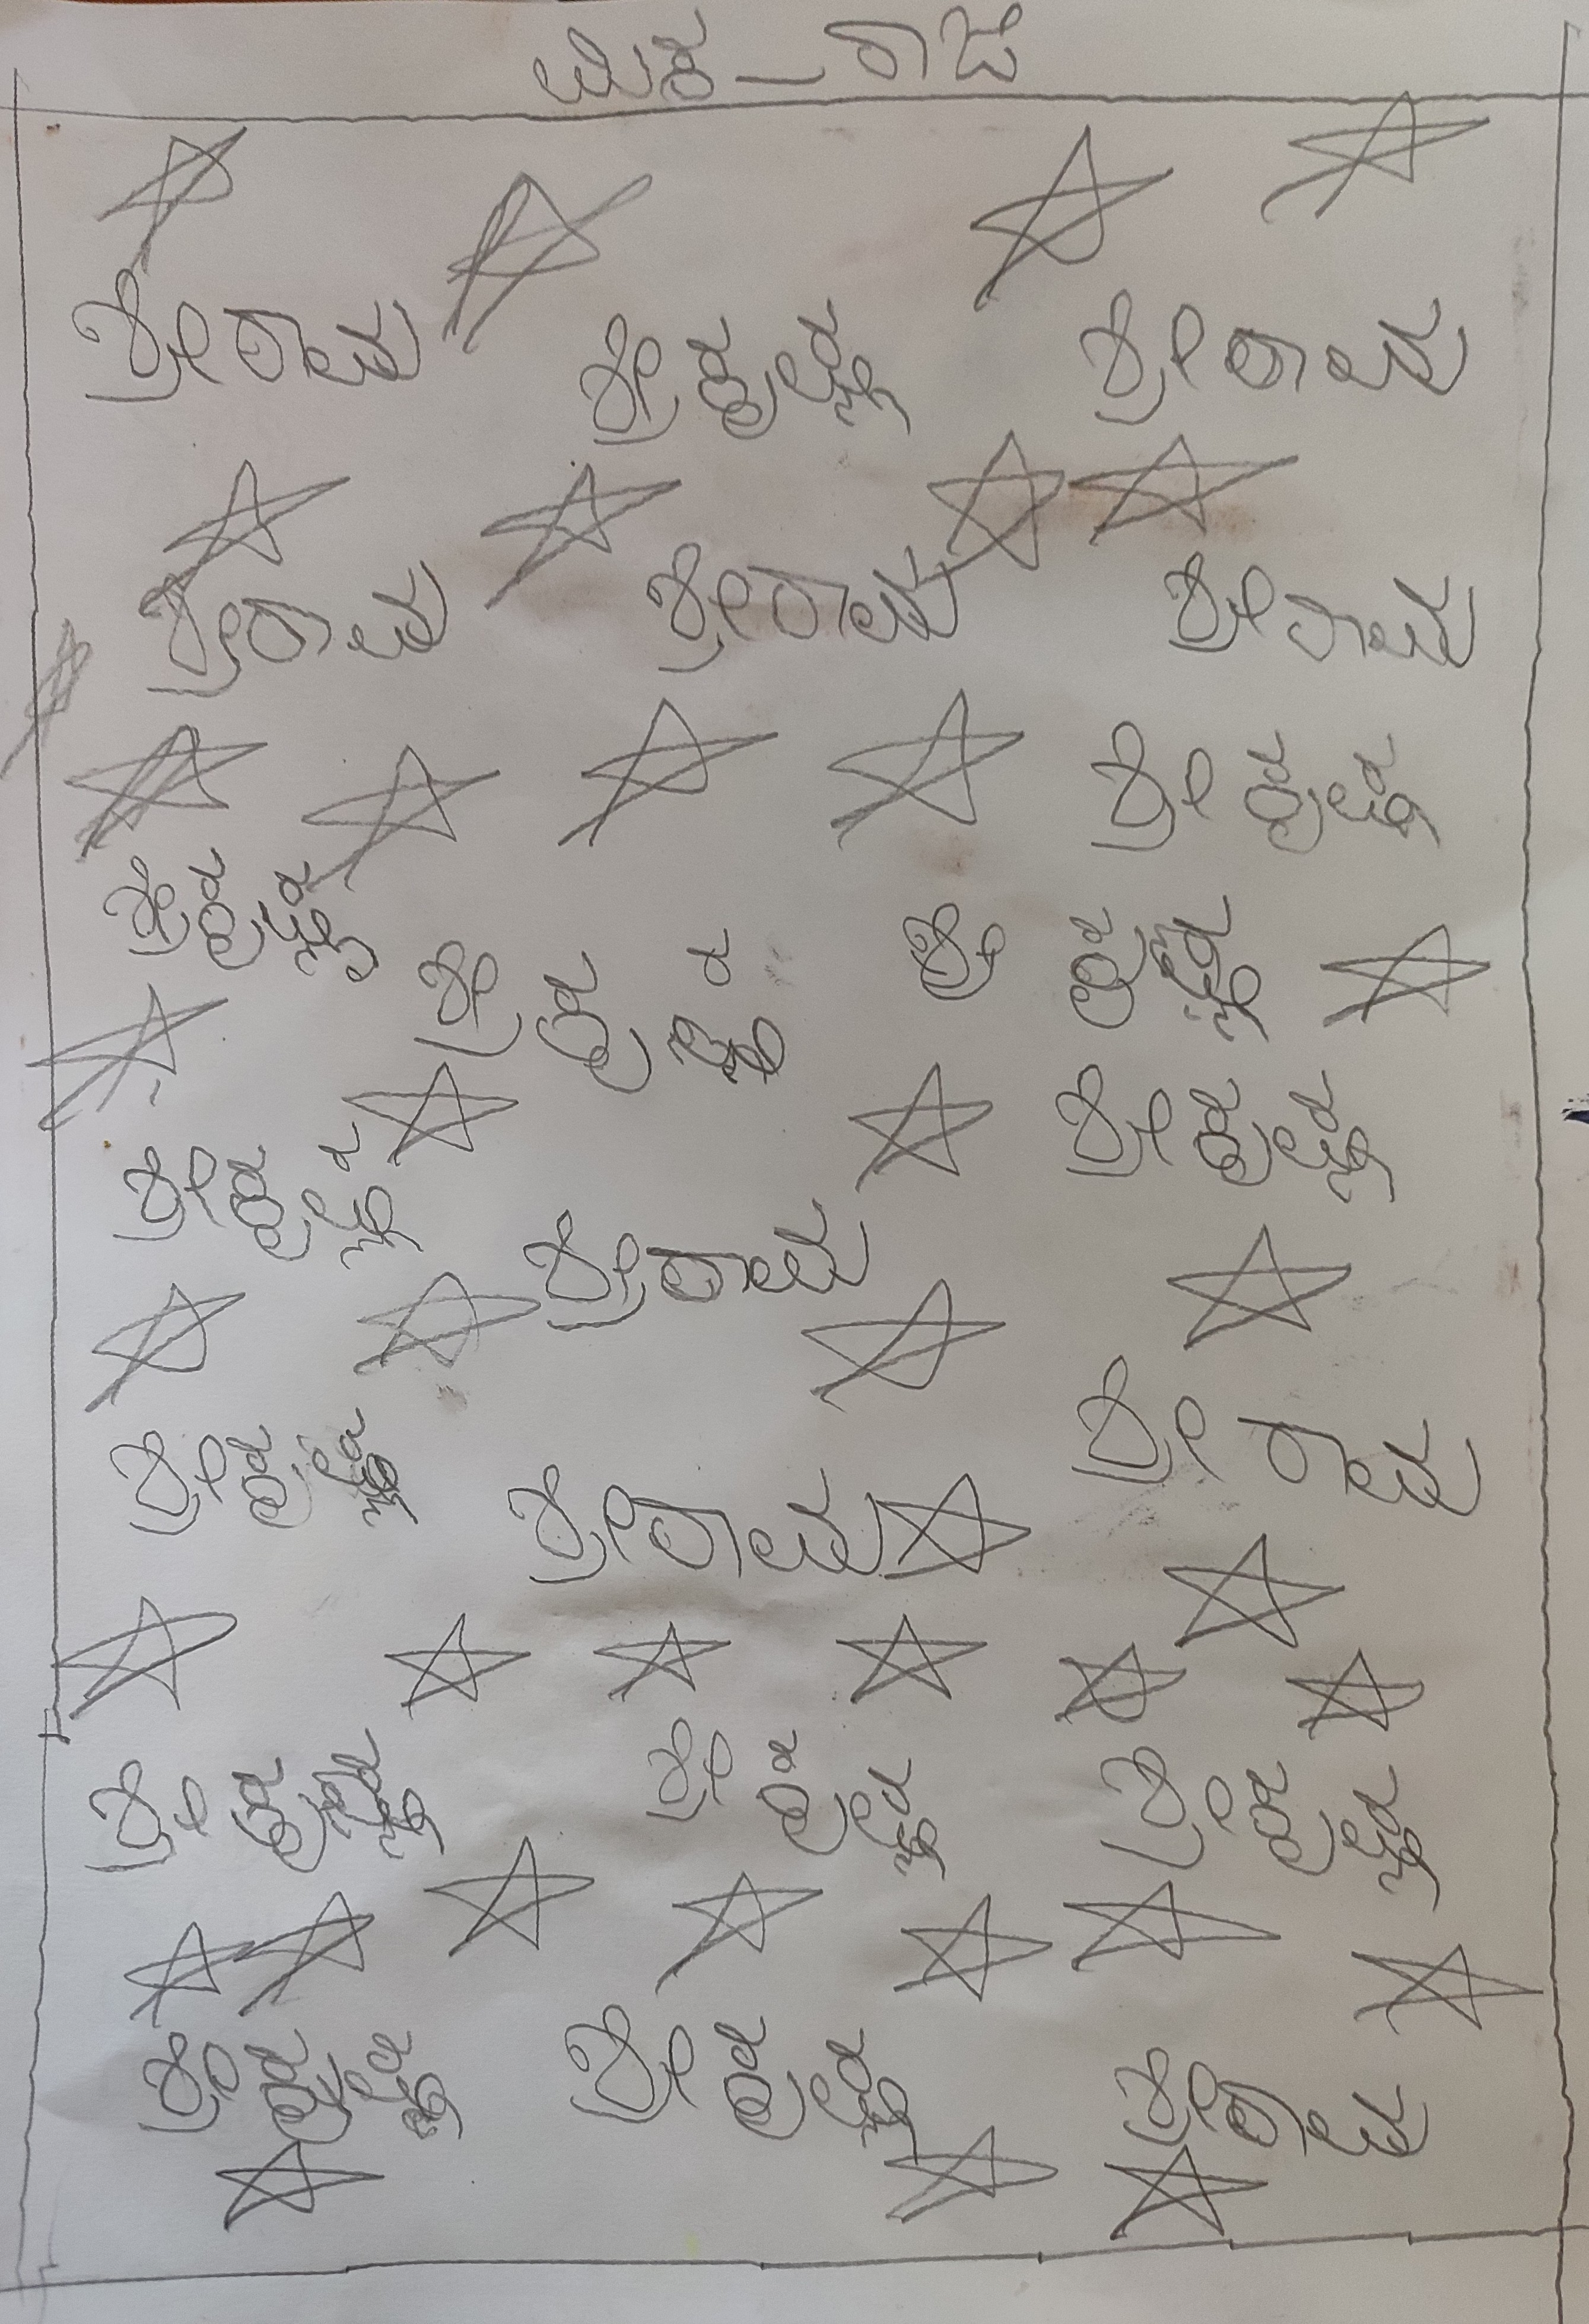 ಮಿಶ_ರಾಜೆ
ಶ್ರೀರಾಮ ಶ್ರೀಕೃಷ್ಣ ಶ್ರೀರಾಮ
ಶ್ರೀರಾಮ ಶ್ರೀರಾಮ ಶ್ರೀರಾಮ
ಶ್ರೀಕೃಷ್ಣ
ಶ್ರೀಕೃಷ್ಣ ಶ್ರೀಕೃಷ್ಣ ಶ್ರೀ ಕೃಷ್ಣ
ಶ್ರೀಕೃಷ್ಣ ಶ್ರೀರಾಮ ಶ್ರೀಕೃಷ್ಣ
ಶ್ರೀಕೃಷ್ಣ ಶ್ರೀರಾಮ ಶ್ರೀ ರಾಮ
ಶ್ರೀ ಕೃಷ್ಣ ಶ್ರೀ ಕೃಷ್ಣ ಶ್ರೀಕೃಷ್ಣ
ಶ್ರೀಕೃಷ್ಣ ಶ್ರೀಕೃಷ್ಣ ಶ್ರೀರಾಮ